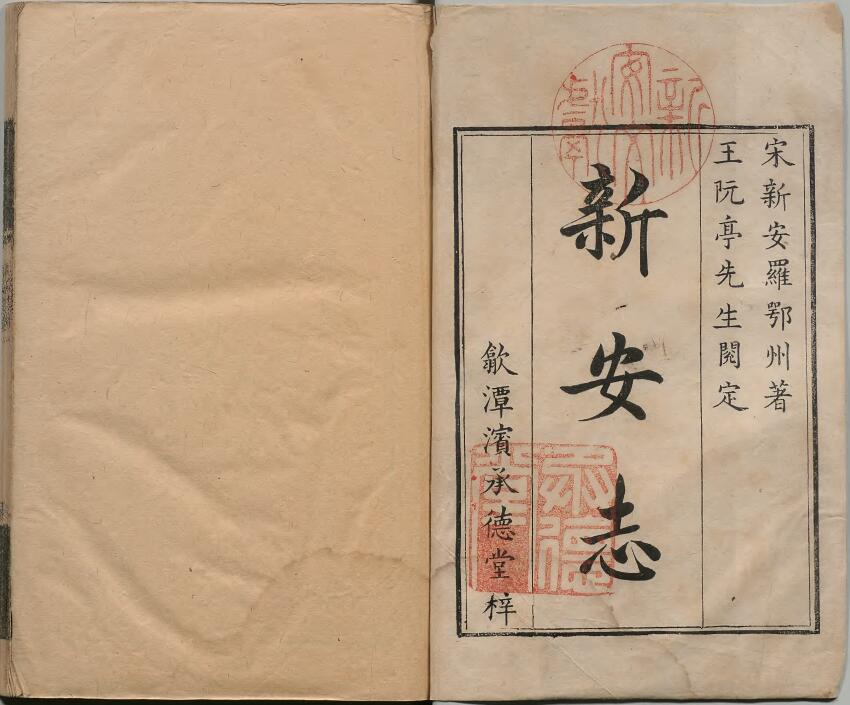 宋新安羅鄂州著
王阮亭先生閱定
新安志
歙潭濱承德堂梓